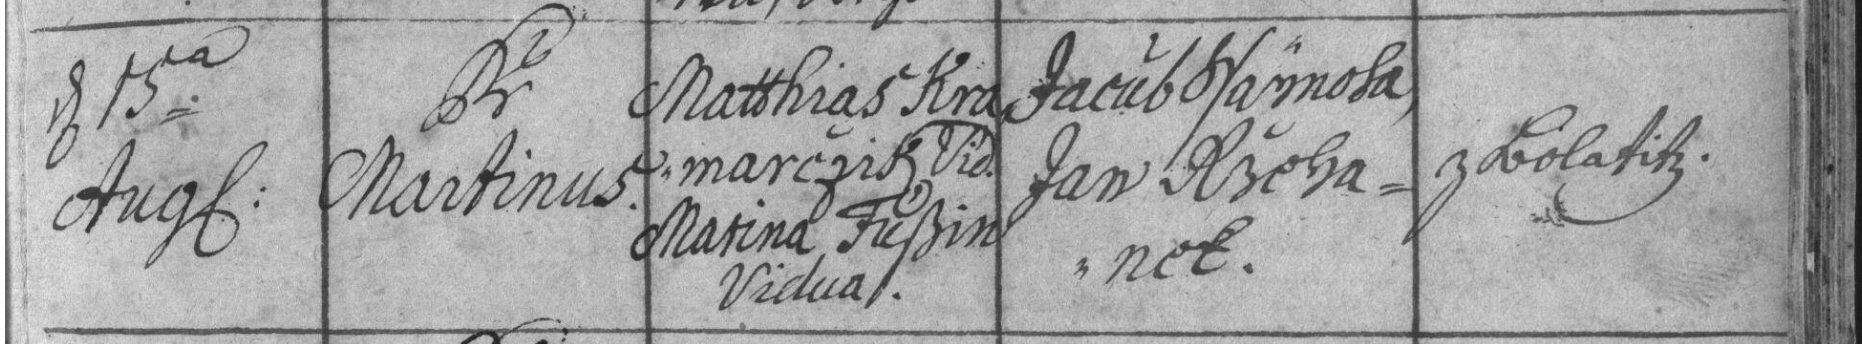 d 15ta
Augs:
Pr
Martinus.
Matthias Kra
„marčzik Vid.
Marina Fußin
Vidua.
Jacub
JanRžeha=
„nek.
z Bolatitz.